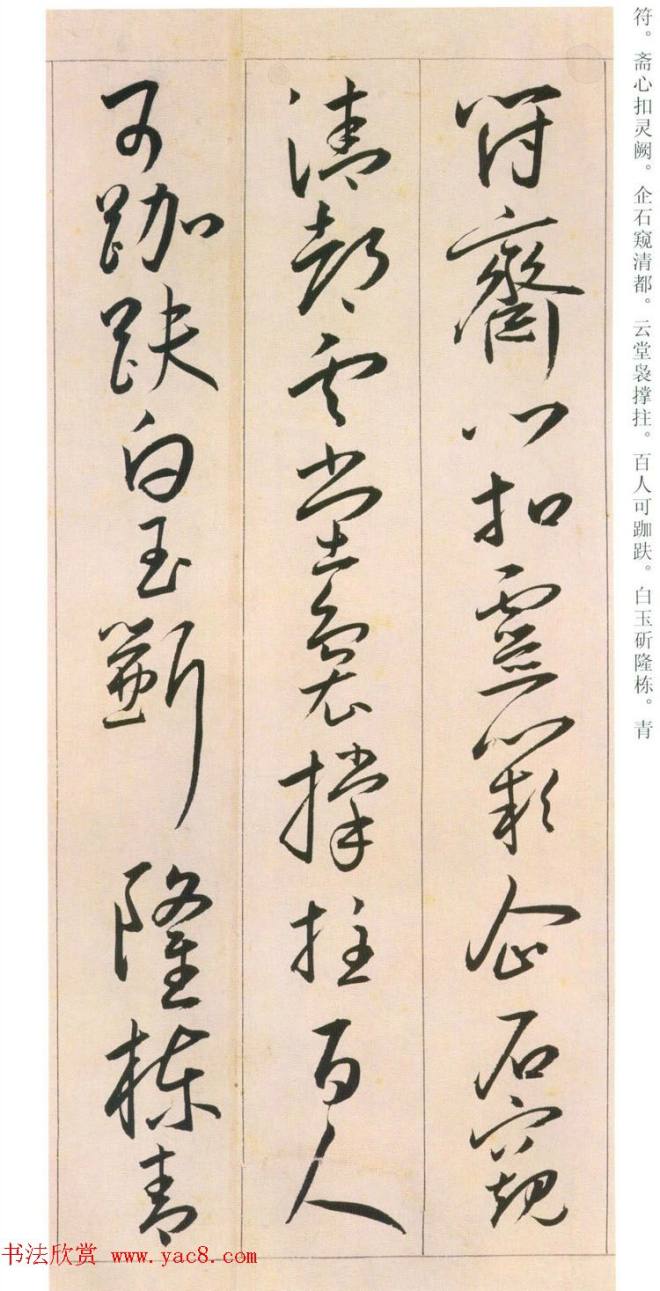 符。斋心扣灵阙。企石窥清都。云堂袅撑拄。百人可跏趺。白玉斫隆栋。青
符齋心扣靈闕企石窺
清都雲堂裊撑拄百人
可跏趺白玉斲隆棟青
书法欣赏 www.yac8.com